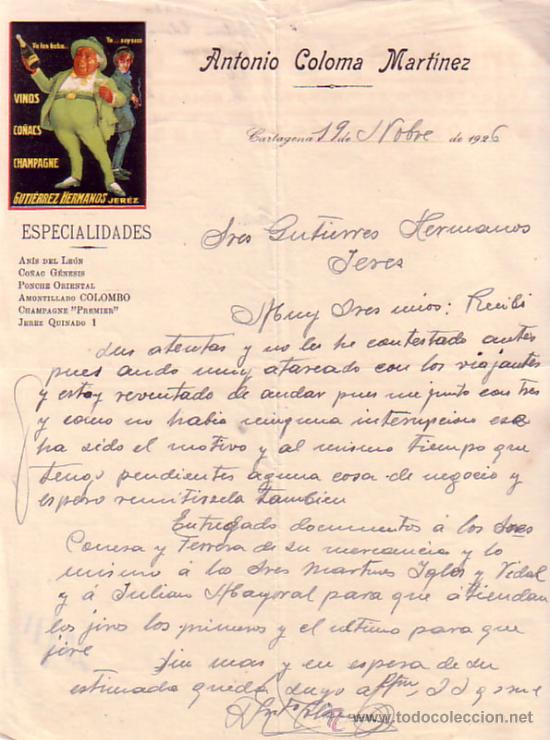 Antonio Coloma Martínez
Ya los bebo...
Yo...
VINOS
COÑACS
CHAMPAGNE
GUTIÉRREZ HERMANOS JEREZ
Cartagena 19 de Nobre de 1926
ESPECIALIDADES
ANÍS DEL LEÓN
COÑAC GÉNESIS
PONCHE ORIENTAL
AMONTILLADO COLOMBO
CHAMPAGNE "PREMIER"
JEREZ QUINADO 1
Sres Gutierres Hermanos
Jeres
Muy Sres mios: Recibi
sus atentas y no les he contestado antes
pues ando muy atareado con los viajantes
y estoy reventado de andar pues me junto con tres
y como no habia ninguna interrupcion ese
ha sido el motivo y al mismo tiempo que
tengo pendientes aguna cosa de negocio y
espero remitirsela tambien
Entregado documentos á los Sres
Conesa y Terresa de su mercancia y lo
mismo á los Sres Martines Iglos y Vidal
y á Julian Mayoral para que átiendan
los jiros los primeros y el ultimo para que
jire
Sin mas y en espera de su
estimada queda suyo
www.todocoleccion.net